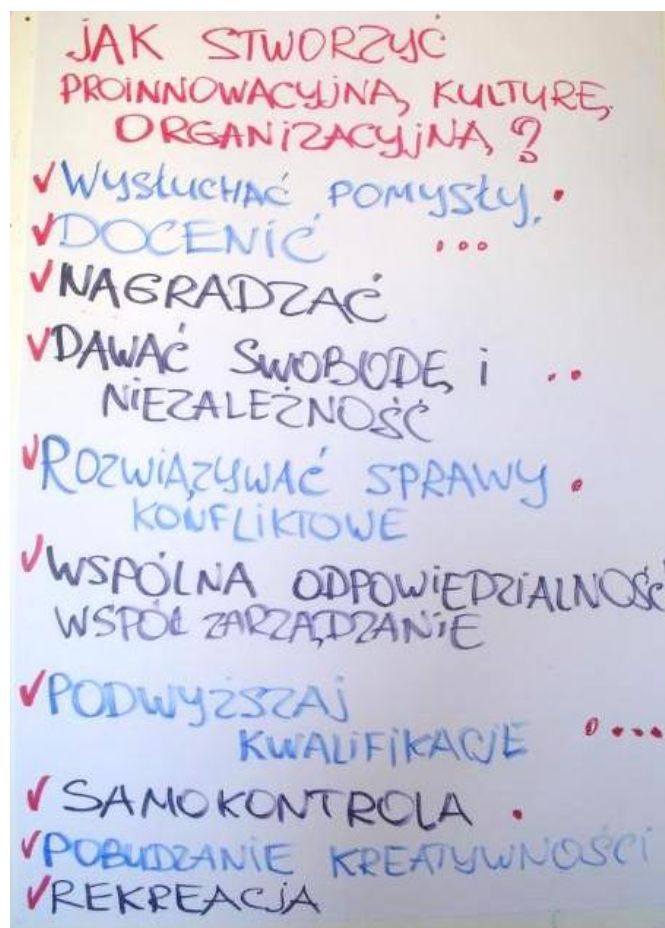 JAK STWORZYĆ
PROINNOWACYJNĄ KULTURĘ
ORGANIZACYJNĄ?
WYSŁUCHAĆ POMYSŁY,
DOCENIĆ
NAGRADZAĆ
DAWAĆ SWOBODĘ i
NIEZALEŻNOŚĆ
ROZWIĄZYWAĆ SPRAWY
KONFLIKTOWE
WSPÓLNA ODPOWIEDZIALNOŚĆ
WSPÓŁ ZARZĄDZANIE
PODWYŻSZAJ
KWALIFIKACJE
SAMOKONTROLA
POBUDZANIE KREATYWNOŚCI
REKREACJA